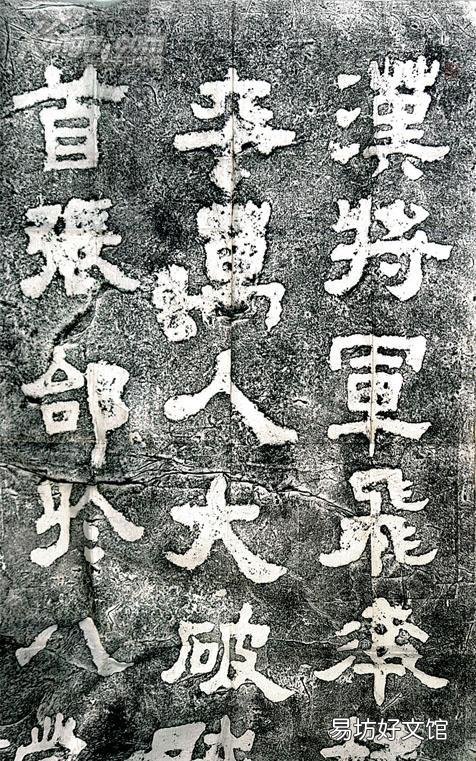 漢將軍飛率
卒萬人大破
首張郃於八
易坊好文馆